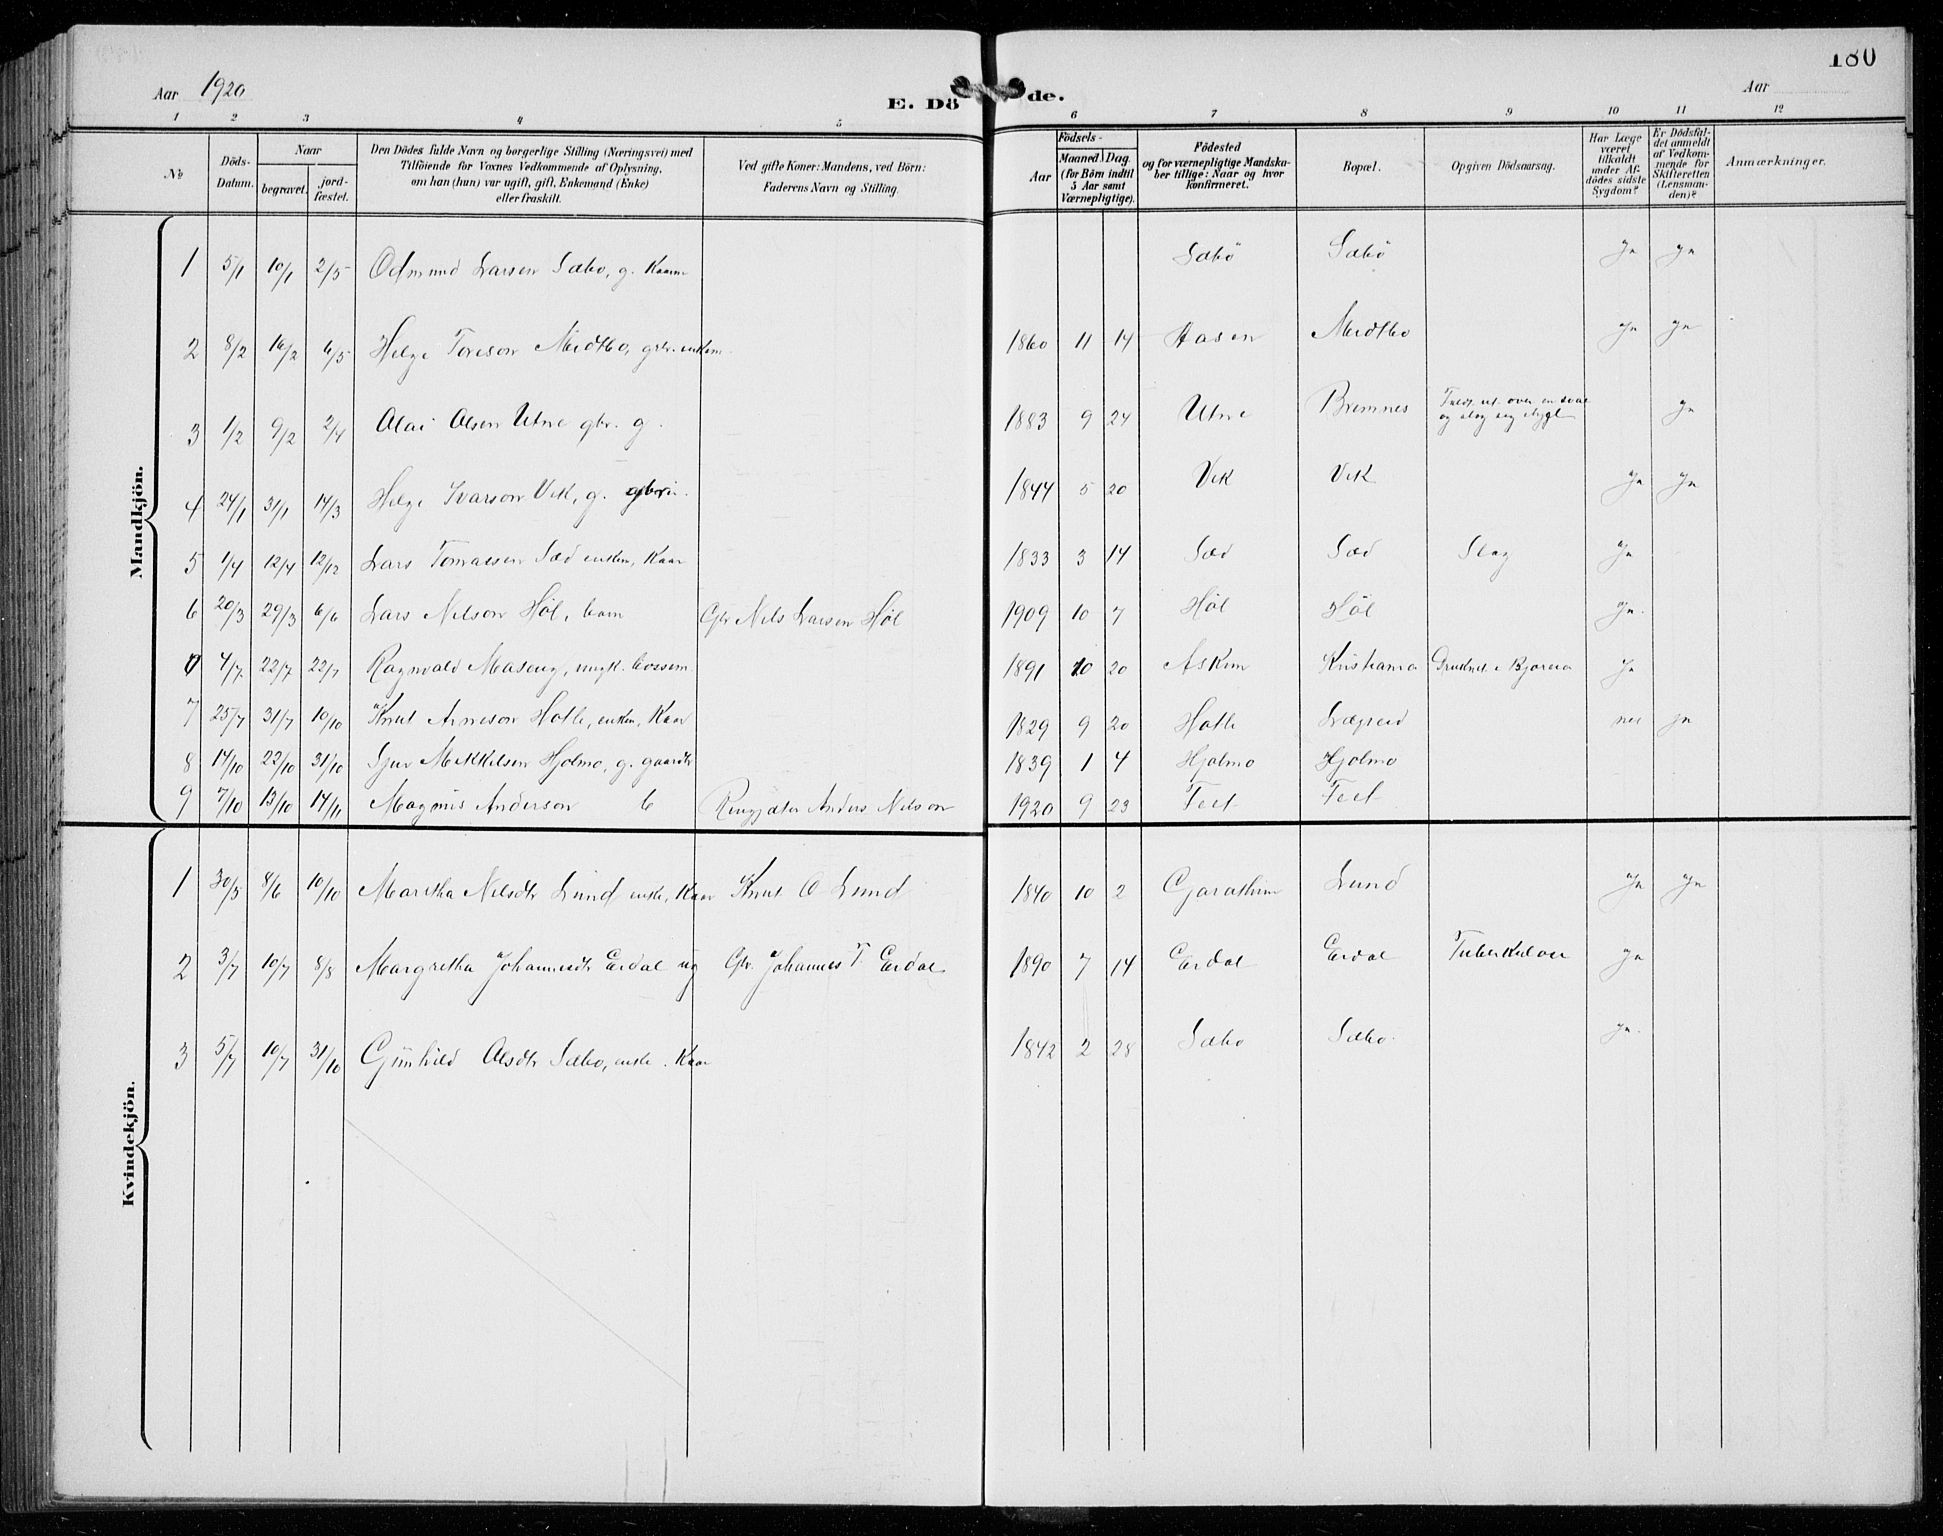 180
Aar 1920
E. Dö de.
Aar
1 2 3 4 5 6 7 8 9 10 11 12
№
Döds-Datum.
Naar
begravet.
jord-fæstet.
Den Dödes fulde Navn og borgerlige Stilling (Næringsvei) med
Tilföiende for Voxnes Vedkommende af Oplysning,
om han (hun) var ugift, gift, Enkemand (Enke)
eller fraskilt.
Ved gifte Koner: Mandens, ved Börn:
Faderens Navn og Stilling.
Födsels-
Aar
Maaned. Dag.
(for Börn indtil
5 Aar samt
Værnepligtige).
Födested
og for værnepligtige Mandska-
ber tillige: Naar og hvor
konfirmeret.
Bopæl.
Opgiven Dödsaarsag.
Har Læge
været
tilkaldt
under Af-
dödes sidste
Sygdom?
Er Dödsfal-
det anmeldt
af Vedkom-
mende for
Skifteretten
(Lensman-
den)?
Anmærkninger.
Mandkjön.
1 5/1 10/1 2/5 Odmund Larsen Sæbo, g. Kaarm Sæbö Sæbö Ja Ja
2 8/2 16/2 6/5 Helge Toreson Meidtbo, gbr. enkem 1860 11 14 Aasen Meidtbo Ja Ja
3 1/2 9/2 2/4 Olai Olsen Utne gbr. g. 1883 9 24 Utne Bremnes Faldt ut over en
og slog seg Ja
4 24/1 31/1 14/3 Helge Ivarson Vik, g. 1844 5 20 Vik Vik Ja Ja
5 1/4 12/4 12/12 Lars Tomassen Sæd enkem, Kaar 1833 3 14 Sæd Sæd Slag Ja
6 20/3 29/3 6/6 Lars Nilson Höl, barn Gbr Nils Larsen Höl 1909 10 7 Höl Höl Ja.
4/7 22/7 22/7 Ragnvald Maseng, ungk. 1891 10 20 Askim Kristiania Druknet i Bjoreia Ja
7 25/7 31/7 10/10 Knut Arneson Hotle, enkem, Kaar 1829 9 20 Hotle Lægreid nei ja
8 14/10 22/10 31/10 Sjur Mikkelsen Hjolmo, g. gaardbr 1839 1 4 Hjolmo Hjolmo
9 7/10 13/10 14/11 Magnus Anderson b Anders Nilson 1920 9 23 Feet Feet
Kvindekjön.
1 30/5 8/6 10/10 Maretha Nilsdtr Lund enke, Kaar Knut O Lund 1840 10 2 Garathun Lund Ja Ja
2 3/7 10/7 8/8 Margretha Johannesdtr Eidal ug Gbr. Johannes T Eidal 1890 7 14 Eidal Eidal Tuberkulose Ja
3 5/7 10/7 31/10 Gunhild Olsdtr Sæbo, enke. Kaar 1842 2 28 Sæbo Sæbo. Ja.